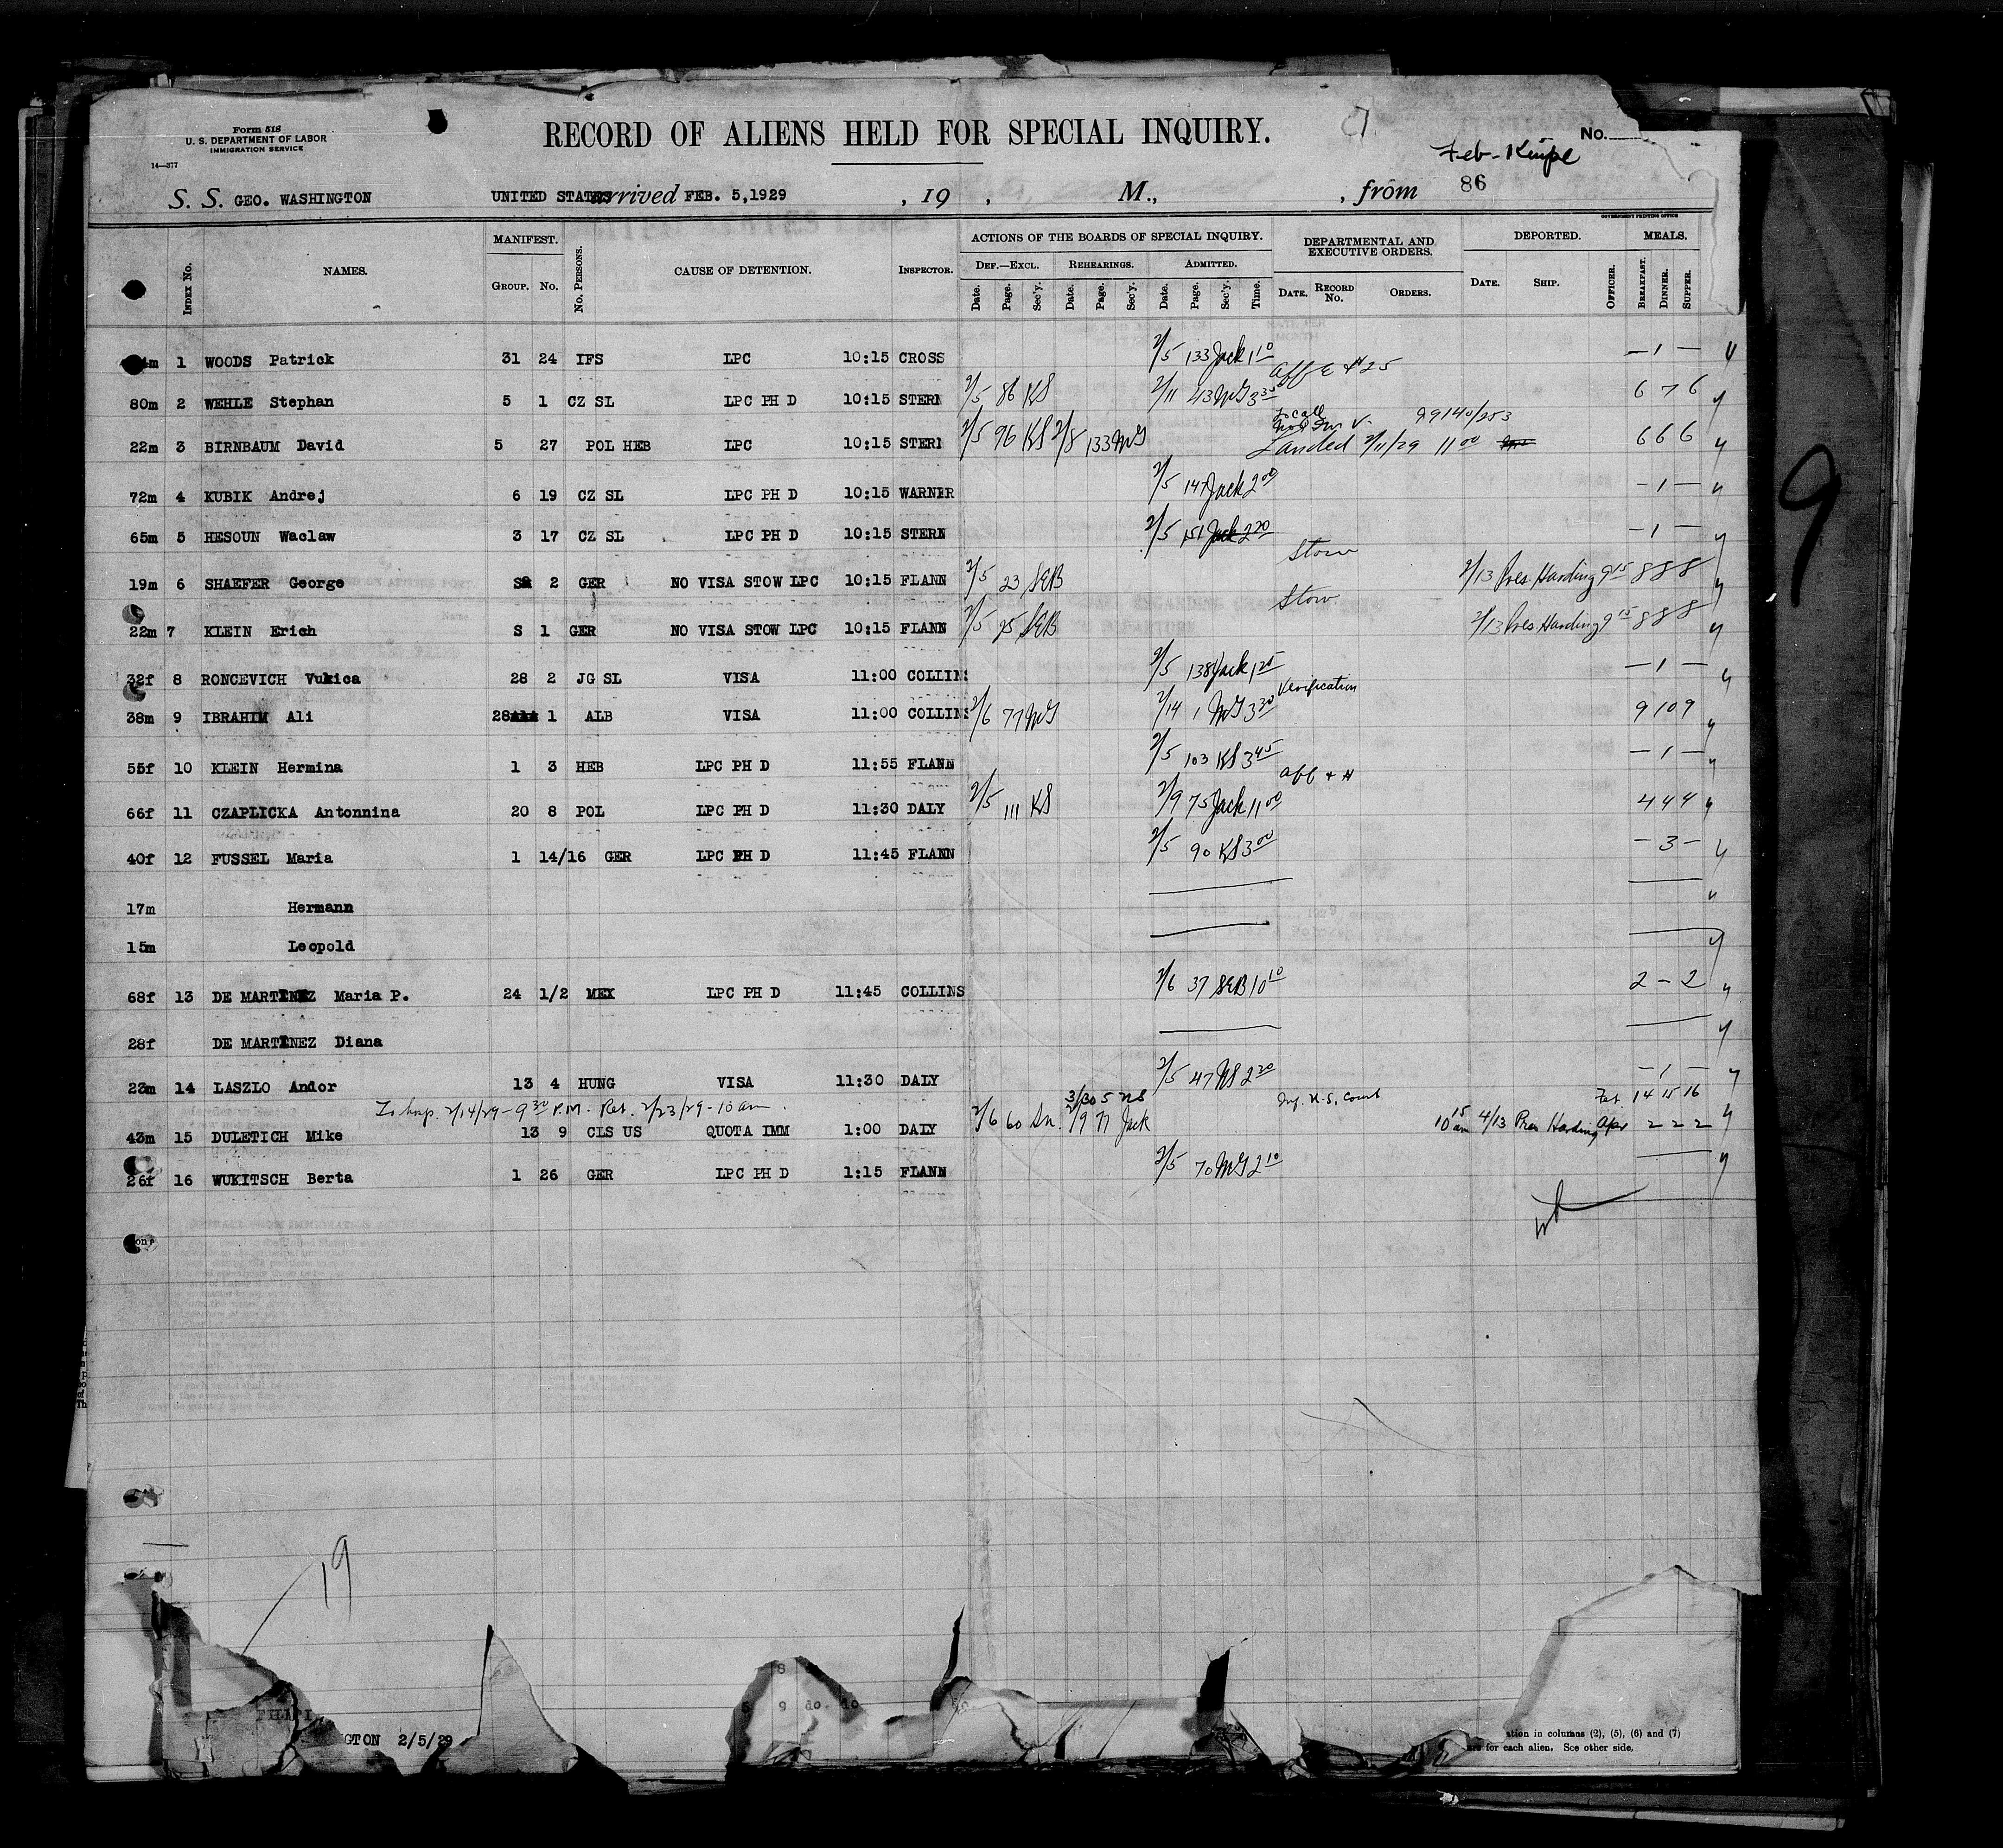 Form 518
U. S. DEPARTMENT OF LABOR
IMMIGRATION SERVICE
14—377
RECORD OF ALIENS HELD FOR SPECIAL INQUIRY.
No.
Feb-
86
S. S. GEO. WASHINGTON UNITED STATES arrived FEB. 5,1929 , 19 , M., , from
GOVERNMENT PRINTING OFFICE
INDEX No. NAMES. MANIFEST. GROUP. No. No. PERSONS. CAUSE OF DETENTION. INSPECTOR. ACTIONS OF THE BOARDS OF SPECIAL INQUIRY. DEPARTMENTAL AND EXECUTIVE ORDERS. DEPORTED. MEALS.
DEF.—EXCL. REHEARINGS. ADMITTED.
Date. Page. Sec'y. Date. Page. Sec'y. Date. Page. Sec'y. Time. DATE. RECORD No. ORDERS. DATE. SHIP. OFFICER. BREAKFAST. DINNER. SUPPER.
1 WOODS Patrick 31 24 IFS LPC 10:15 CROSS 2/5 133 Jack 1 10 — 1 —
80m 2 WEHLE Stephan 5 1 CZ SL LPC PH D 10:15 STERN 2/5 86 KS 2/11 43 MG 3 6 7 6
22m 3 BIRNBAUM David 5 27 POL HEB LPC 10:15 STERN 2/5 96 KS 2/8 133 MG 99140/253 Landed 2/11/29 11 00 6 6 6
72m 4 KUBIK Andrej 6 19 CZ SL LPC PH D 10:15 WARNER 2/5 147 Jack 2 00 — 1 —
65m 5 HESOUN Waclaw 3 17 CZ SL LPC PH D 10:15 STERN 2/5 151 Jack 2 20 — 1 —
19m 6 SHAEFER George S 2 GER NO VISA STOW LPC 10:15 FLANN 2/5 23 SEB Stow 2/13 Pres Harding 9 15 8 8 8
22m 7 KLEIN Erich S 1 GER NO VISA STOW LPC 10:15 FLANN 2/5 25 SEB Stow 2/13 Pres Harding 9 15 8 8 8
32f 8 RONCEVICH Vukica 28 2 JG SL VISA 11:00 COLLINS 2/5 138 Jack 1 25 — 1 —
38m 9 IBRAHIM Ali 28 1 ALB VISA 11:00 COLLINS 2/6 77 MG 2/14 1 MG 3 30 Verification 9 10 9
55f 10 KLEIN Hermina 1 3 HEB LPC PH D 11:55 FLANN 2/5 103 KS 3 45 — 1 —
66f 11 CZAPLICKA Antonnina 20 8 POL LPC PH D 11:30 DALY 2/5 111 KS 2/9 75 Jack 11 00 aff + H 4 4 4
40f 12 FUSSEL Maria 1 14/16 GER LPC PH D 11:45 FLANN 2/5 90 KS 3 00 — 3 —
17m Hermann
15m Leopold
68f 13 DE MARTINEZ Maria P. 24 1/2 MEX LPC PH D 11:45 COLLINS 2/6 37 SEB 10 10 2 — 2
28f DE MARTINEZ Diana
23m 14 LASZLO Andor 13 4 HUNG VISA 11:30 DALY 2/5 47 NS 2 20 — 1 —
To hosp. 2/14/29 - 9 30 P.M. Ret. 2/23/29 - 10 am. 3/30 5 NS Feb 14 15 16
43m 15 DULETICH Mike 13 9 CLS US QUOTA IMM 1:00 DALY 2/6 60 2/9 Jack 10 15 am 4/13 Pres Harding Apr 2 2 2
26f 16 WUKITSCH Berta 1 26 GER LPC PH D 1:15 FLANN 2/5 70 MG 2 10
9
19
8
9 do do
GTON 2/5/29
ation in columns (2), (5), (6) and (7)
for each alien. See other side.